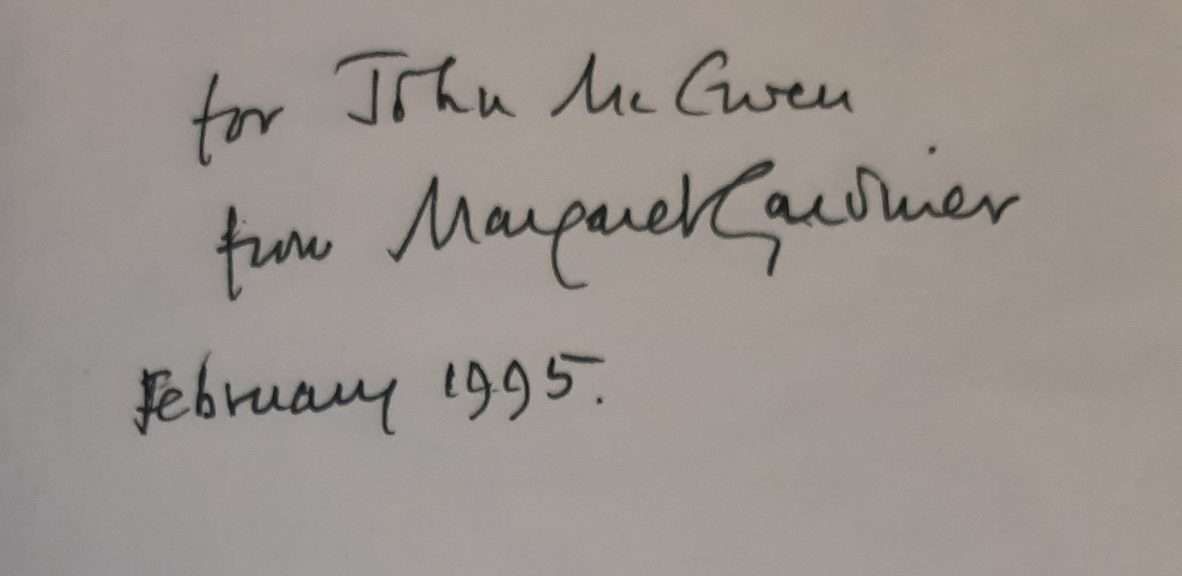 for John McEwen
from Margaret Gardiner
February 1995.